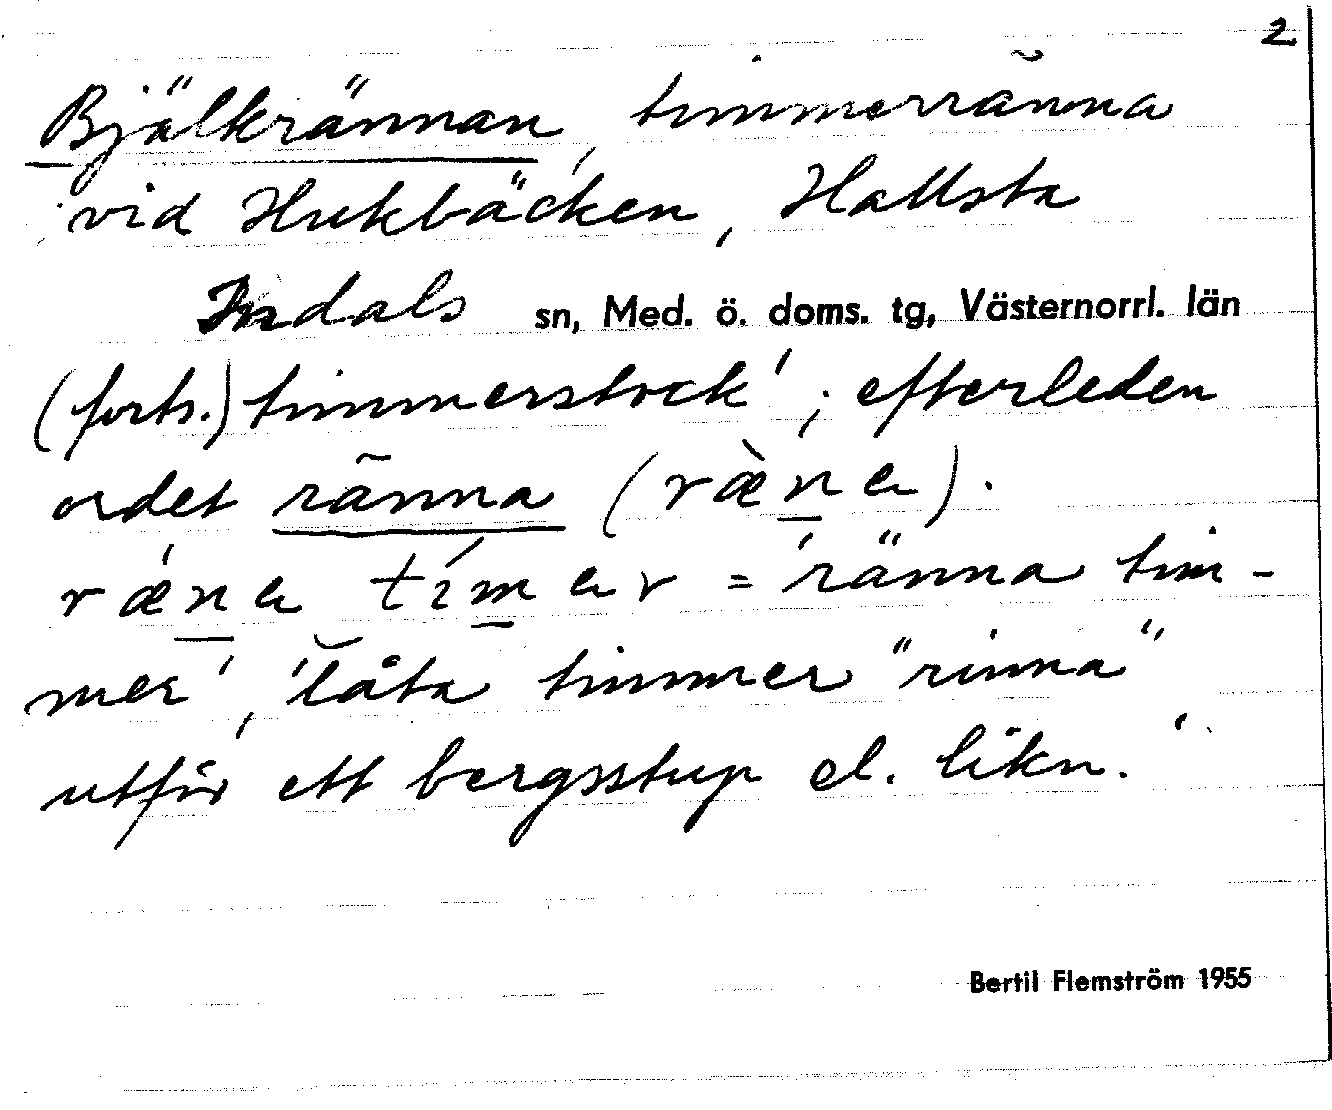 2
Bjälkrännan, timmerränna
vid Hukbäcken, Hallsta
Indals sn, Med. ö. doms. tg, Västernorrl. län
(forts.) timmerstock'; efterleden
ordet ränna (ræ̀n̲a).
ræ̀n̲a tím̲ar = 'ränna tim-
mer', 'låta timmer "rinna"
utför ett bergsstup el. likn.'
Bertil Flemström 1955